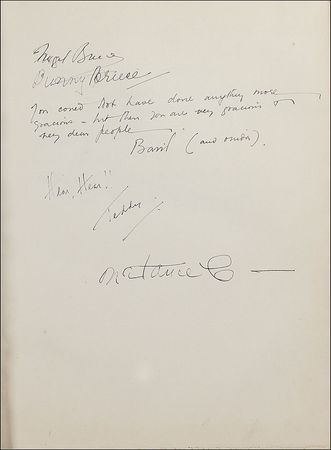 Nigel Bruce
Bunny Bruce
You could not have done anything more
gracious - but then you are very gracious &
very dear people
Basil (and ouida).
Hear, Hear!!
Teddy.